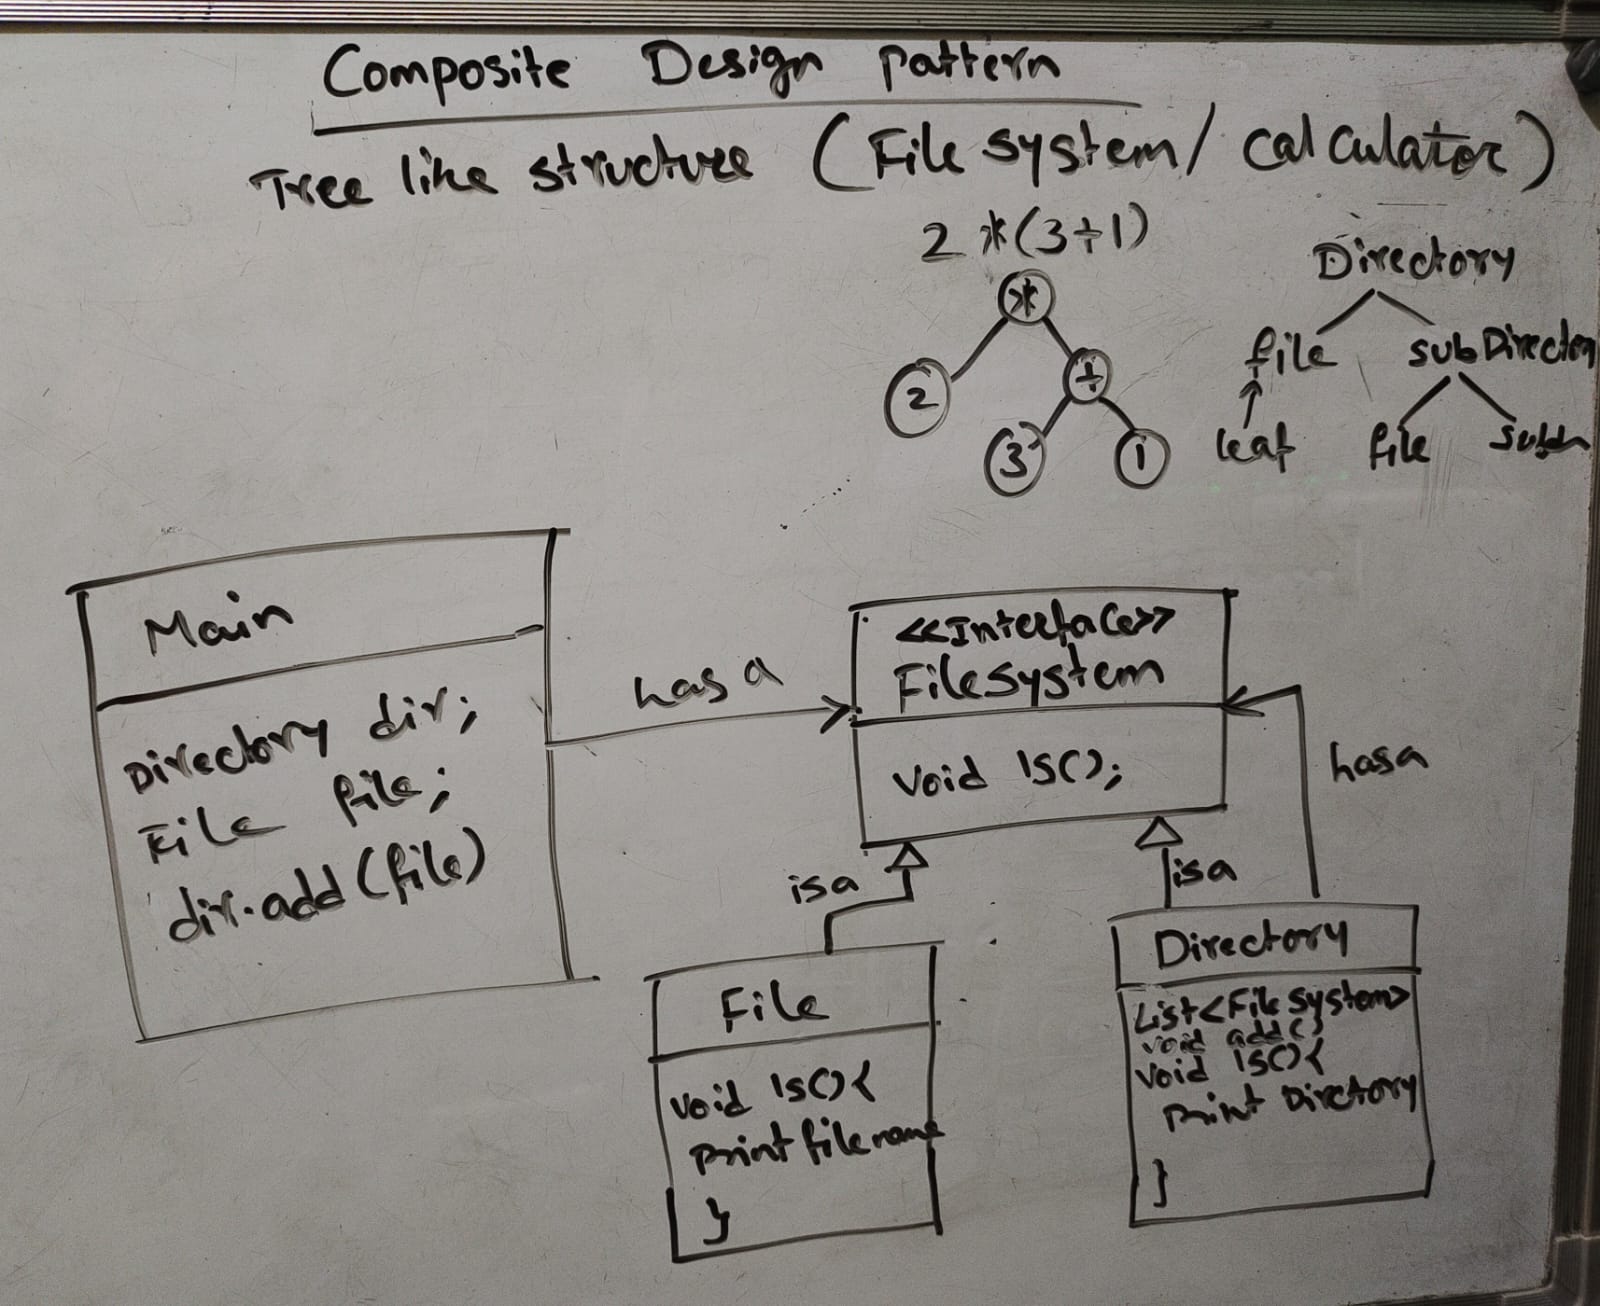 Composite Design pattern
Tree like structure (File system/ calculator)
2 * (3+1)
*
2
+
3
1
Directory
file
sub Directory
leaf
file
Main
Directory dir;
File file;
dir.add(file)
has a
<<Interface>>
Filesystem
void ls();
has a
is a
is a
File
void ls(){
print filename
}
Directory
List<File System>
void add()
void ls(){
print Directory
}